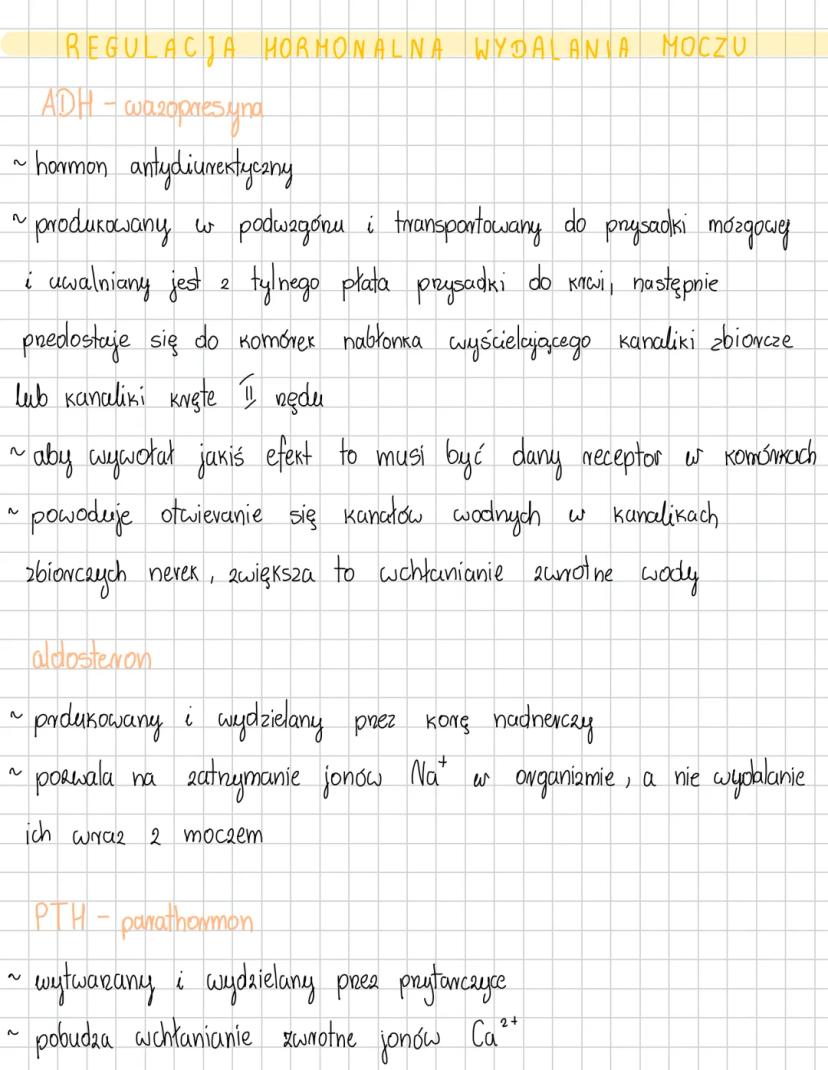 REGULACJA HORMONALNA WYDALANIA MOCZU
ADH - wazopresyna
~ hormon antydiurektyczny
~ produkowany w podwzgórzu i transportowany do przysadki mózgowej
i uwalniany jest z tylnego płata przysadki do krwi, następnie
przedostaje się do komórek nabłonka wyścielającego kanaliki zbiorcze
lub kanaliki kręte II rzędu
~ aby wywołał jakiś efekt to musi być dany receptor w komórkach
~ powoduje otwieranie się kanałów wodnych w kanalikach
zbiorczych nerek, zwiększa to wchłanianie zwrotne wody
aldosteron
~ prdukowany i wydzielany przez korę nadnerczy
~ pozwala na zatrzymanie jonów Na⁺ w organizmie, a nie wydalanie
ich wraz z moczem
PTH - parathormon
~ wytwarzany i wydzielany przez przytarczyce
~ pobudza wchłanianie zwrotne jonów Ca²⁺